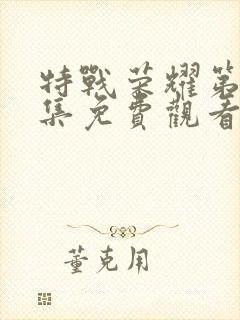 特戰荣耀第
集免費觀看
董克用